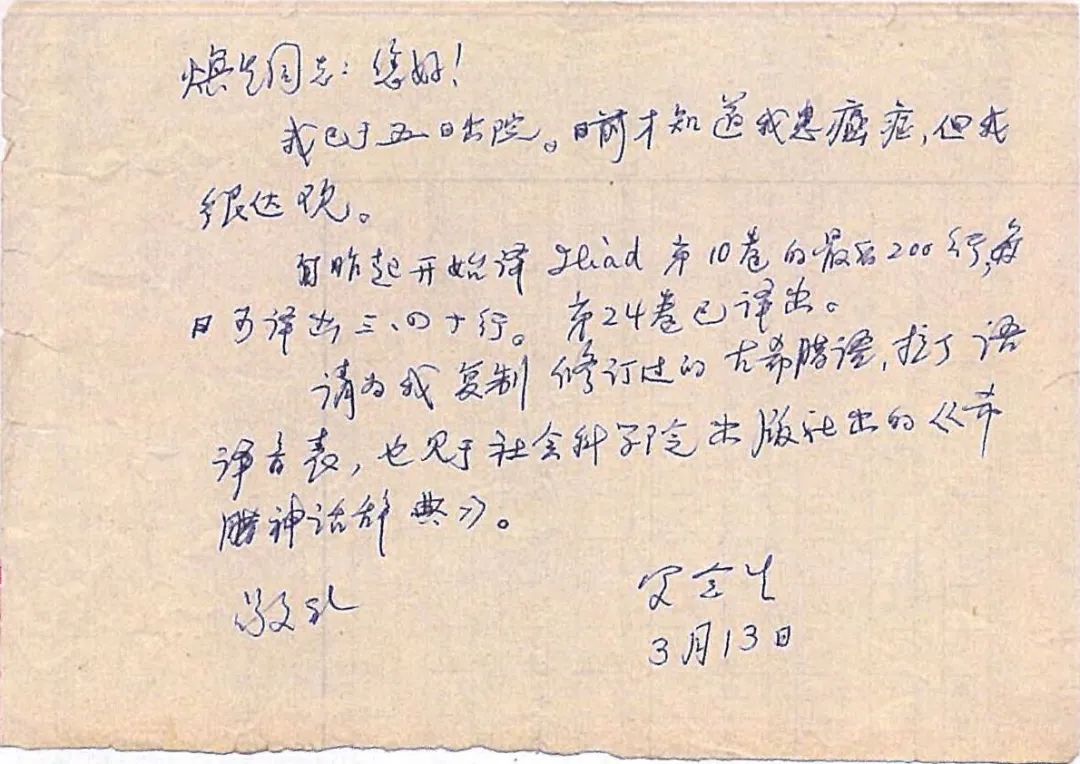 焕生同志：您好！
我已于五日出院。日前才知道我患癌症，但我
很达观。
自昨起开始译 Iliad 第10卷的最后200行，每
日可译出三、四十行。第24卷已译出。
请为我复制修订过的古希腊语，拉丁语
译音表，也见于社会科学院出版社出的《希
腊神话辞典》。
敬礼
罗念生
3月13日